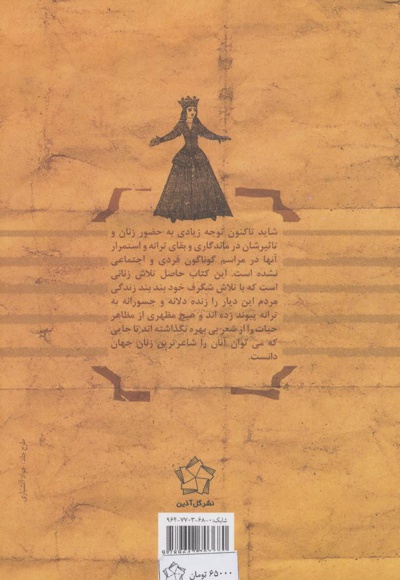 شاید تاکنون توجه زیادی به حضور زنان و
تاثیرشان در ماندگاری و بقای ترانه و استمرار
آنها در مراسم گوناگون فردی و اجتماعی
نشده است. این کتاب حاصل تلاش زنانی
است که با تلاش شگرف خود بند بند زندگی
مردم این دیار را زنده دلانه و جسورانه به
ترانه پیوند زده اند و هیچ مظهری از مظاهر
حیات را از شعر بی بهره نگذاشته اند تا جایی
که می توان آنان را شاعرترین زنان جهان
دانست.
طرح جلد:
نشر گل آذین
شابک: ۰-۶۸-۷۷۰۳-۹۶۴
۶۵۰۰۰ تومان